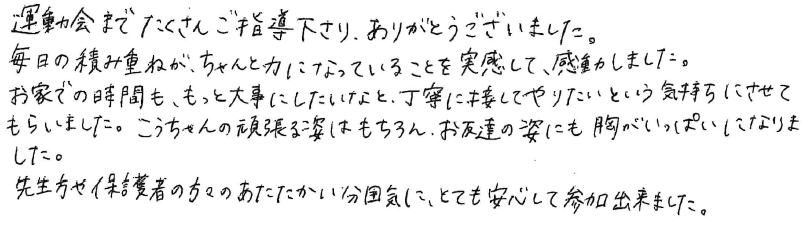 運動会まで たくさん ご指導下さり、ありがとうございました。
毎日の積み重ねが、ちゃんと力になっていることを実感して、感動しました。
お家での時間も、もっと大事にしたいなと、丁寧に接してやりたいという気持ちにさせて
もらいました。こうちゃんの頑張る姿はもちろん、お友達の姿にも胸がいっぱいになりま
した。
先生方や保護者の方々のあたたかい分囲気に、とても安心して参加出来ました。